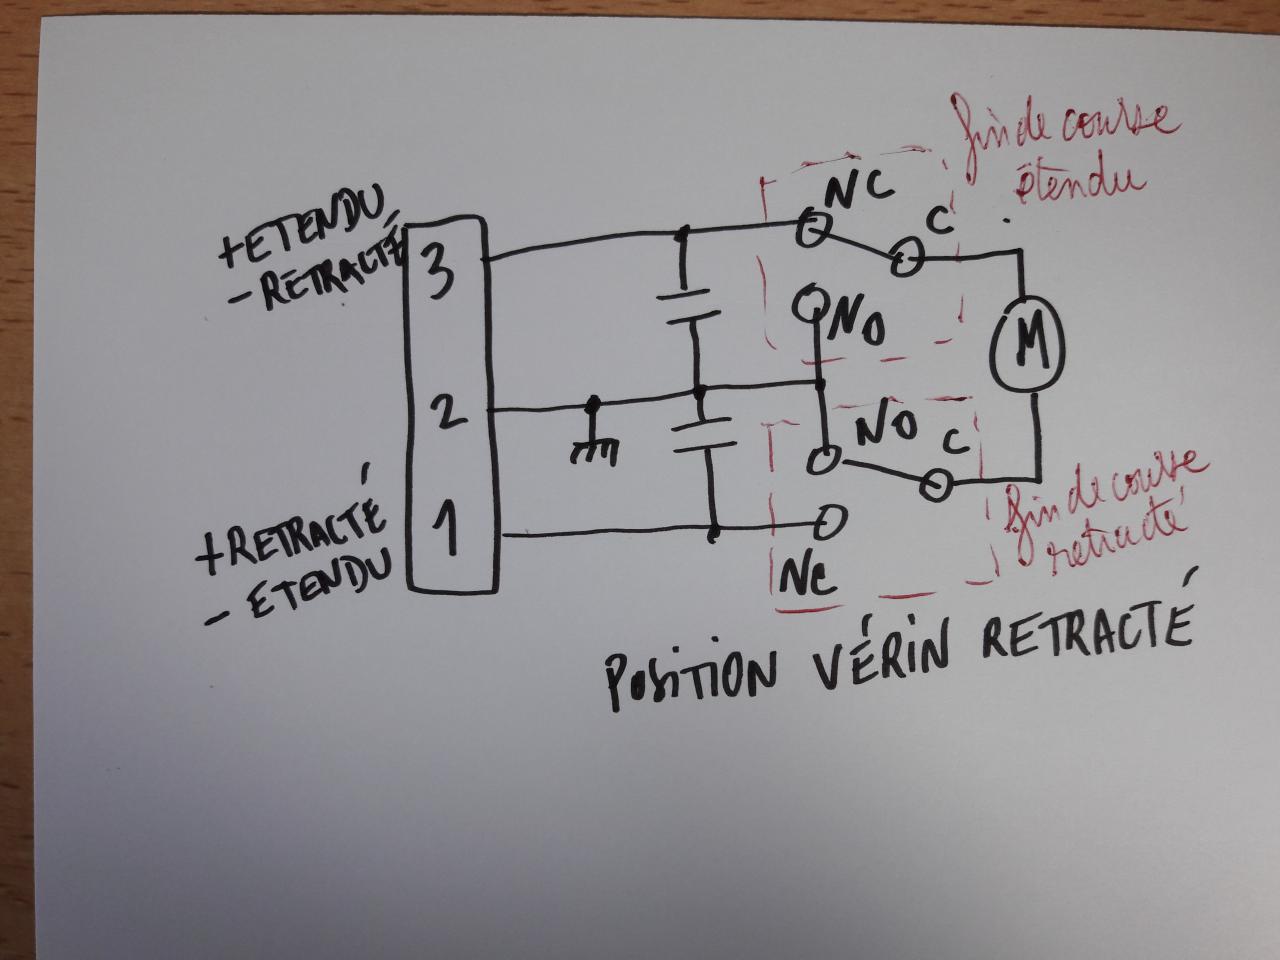 fin de course
étendu
NC
C
+ETENDU
-RETRACTÉ
3
NO
M
2
NO
C
fin de course
retracté
+RETRACTÉ
- ETENDU
1
NC
POSITION VÉRIN RETRACTÉ